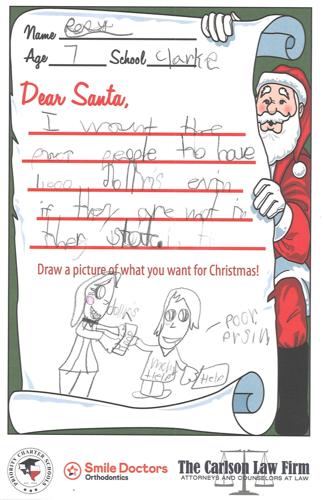 Name Rory
Age 7 School Clarke
Dear Santa,
I want the
poor people to have
1,000 dollins evin
if they are not in
ther stat.
Draw a picture of what you want for Christmas!
dollins
poor
prsin
Help
PRIORITY CHARTER SCHOOLS
Smile Doctors
Orthodontics
The Carlson Law Firm
ATTORNEYS AND COUNSELORS AT LAW